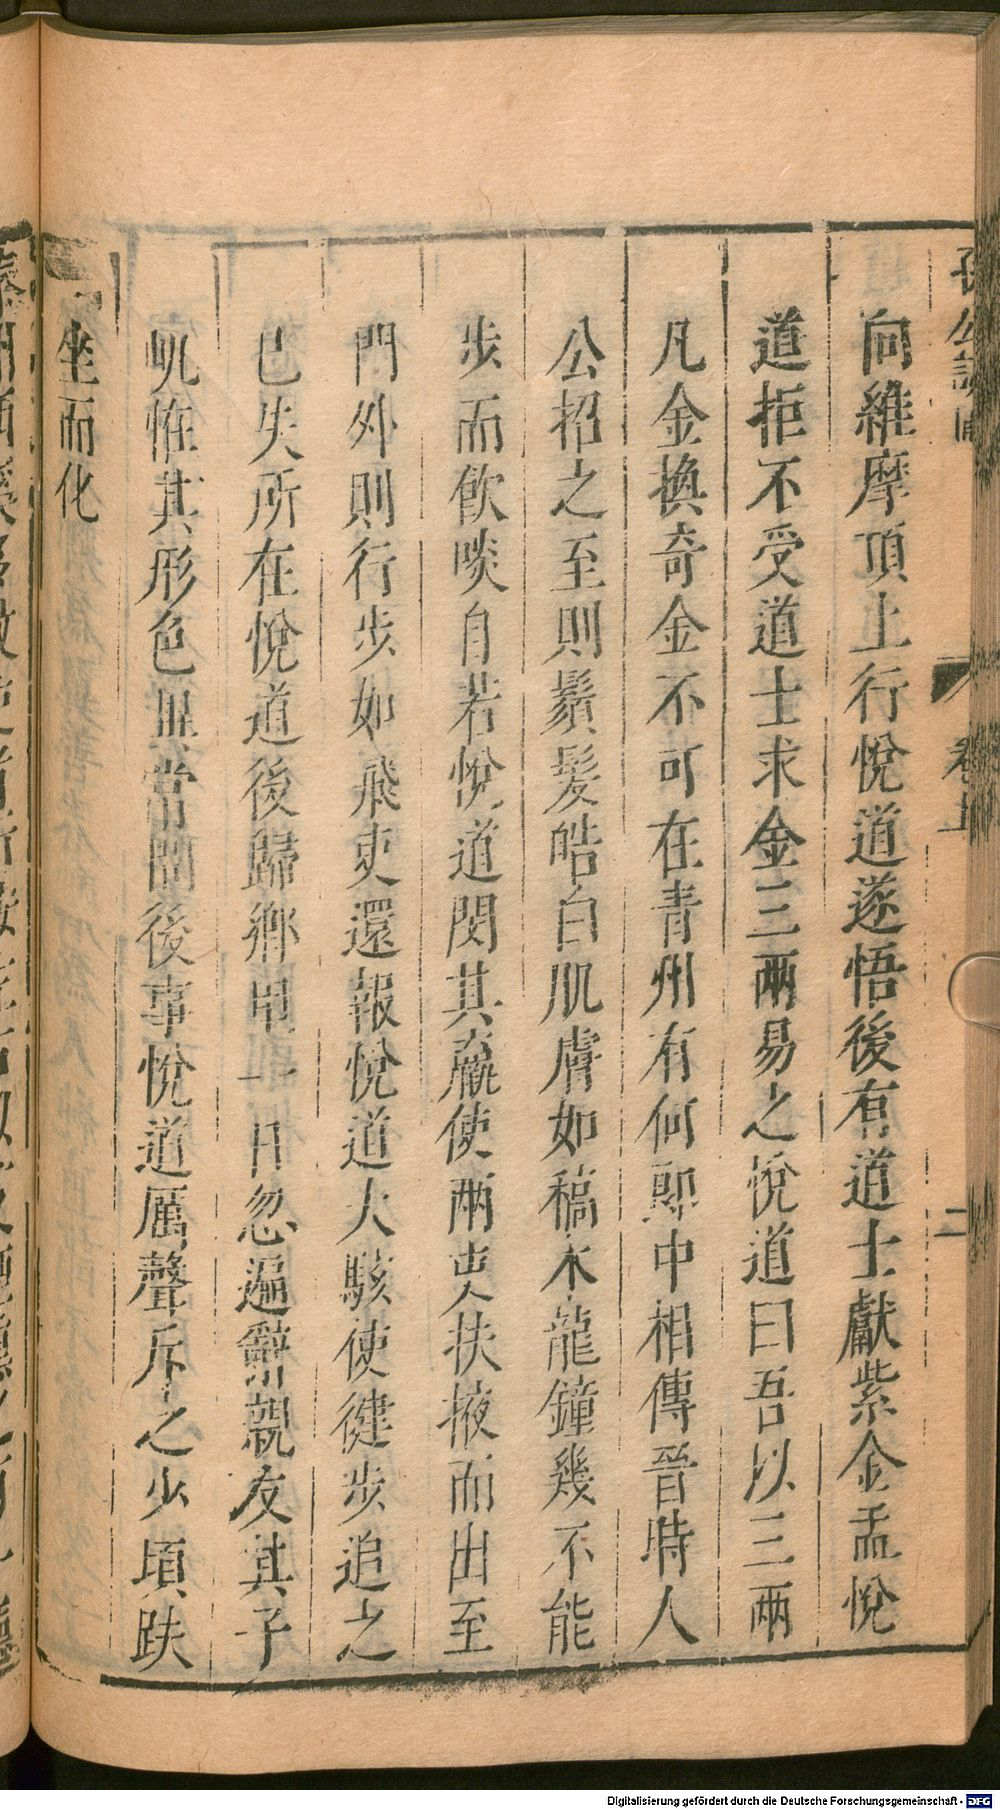 孫公談圃
卷上
二
向維摩頂上行悅道遂悟後有道士獻紫金盂悅
道拒不受道士求金三兩易之悅道曰吾以三兩
凡金換奇金不可在青州有何郎中相傳晉時人
公招之至則鬚髮皓白肌膚如稿木龍鐘幾不能
步而飲啖自若悅道閔其羸使兩吏扶掖而出至
門外則行步如飛吏還報悅道大駭使徤步追之
已失所在悅道後歸鄉里一日忽遍辭親友其子
㞦恠其形色異常問後事悅道厲聲斥之少頃趺
坐而化
Digitalisierung gefördert durch die Deutsche Forschungsgemeinschaft - DFG